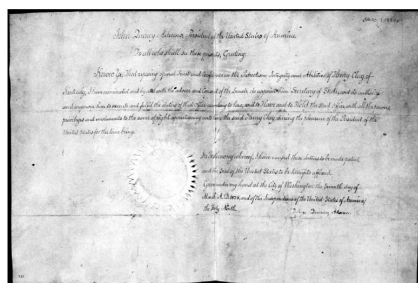 John Quincy Adams, President of the United States of America,
To all who shall see these presents, Greeting:
Know Ye, That reposing special Trust and Confidence in the Patriotism, Integrity and Abilities of Henry Clay, of
Kentucky, I have nominated and by and with the Advice and Consent of the Senate do appoint him Secretary of State, and do authorize
and empower him to execute and fulfil the duties of that Office according to law; and to Have and to Hold the said Office, with all the powers,
privileges and emoluments to the same of right appertaining unto him the said Henry Clay, during the pleasure of the President of the
United States for the time being.
In Testimony whereof, I have caused these Letters to be made patent
and the Seal of the United States to be hereunto affixed.
Given under my hand at the City of Washington the Seventh day of
March A.D. 1825, and of the Independence of the United States of America
the Forty Ninth.